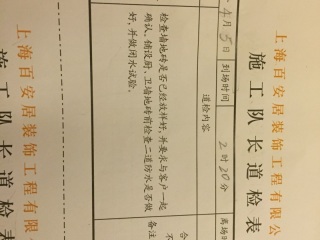 上海百安居装饰工程有限公
施工队长道检表
4月5日 到场时间 2时20分 离场时
道检内容
检查墙地砖是否已经放样好,并要求与客户一起
确认,铺设厨、卫墙地砖前检查二道防水是否做
好,并做闭水试验。
备注
上海百安居装饰工程有限
施工队长道检表